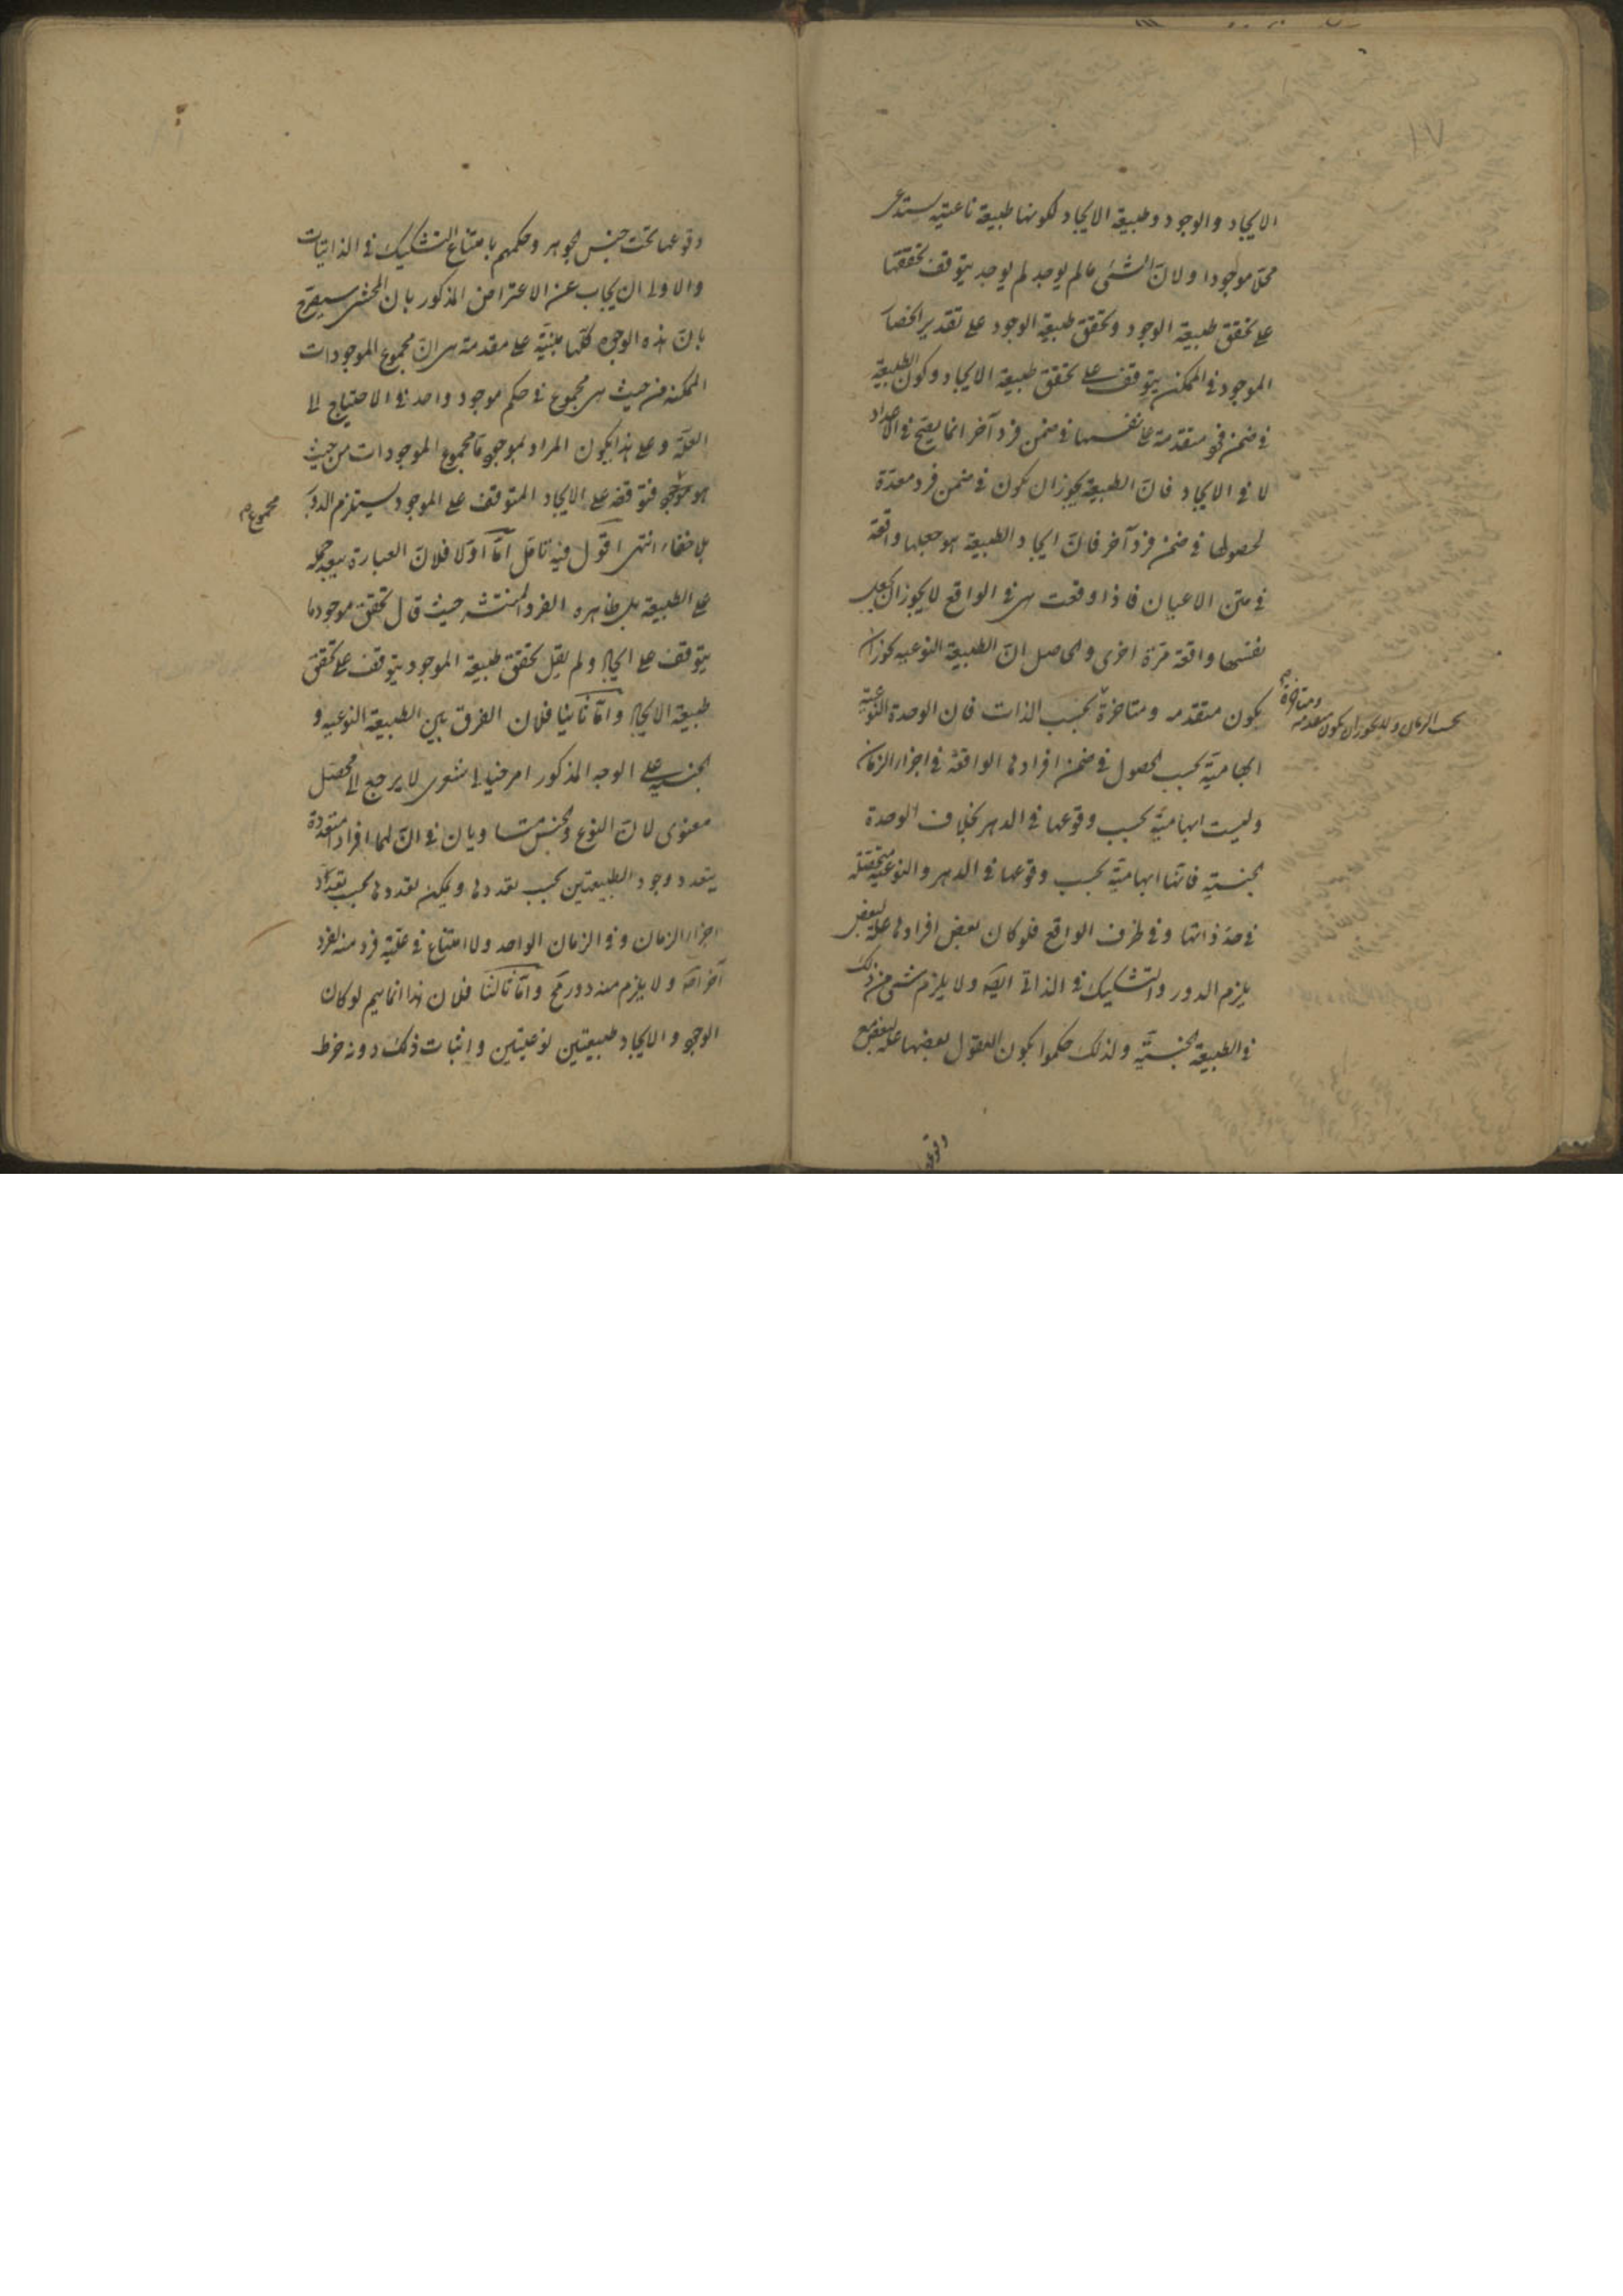 ١٧
الايجاد والوجود وطبيعة الايجاد لكونها طبيعة ناعتية يستدعى
محلا موجودا ولانّ الشئ مالم يوجد لم يوجد يتوقف تحققها
على تحقق طبيعة الوجود وتحقق طبيعة الوجود على تقدير انحصار
الموجود فى الممكن يتوقف على تحقق طبيعة الايجاد وكون الطبيعة
فى ضمن فرد متقدمة على نفسها فى ضمن فرد آخر انما يصح فى الاعداد
لا فى الايجاد فانّ الطبيعة يجوز ان تكون فى ضمن فرد معدّة
لحصولها فى ضمن فرد آخر فانّ ايجاد الطبيعة هو جعلها واقعة
فى متن الاعيان فاذا وقعت هى فى الواقع لا يجوز ان يجعل
نفسها واقعة مرّة اخرى والحاصل انّ الطبيعة النوعية يجوز ان
يكون متقدمه ومتاخرة بحسب الذات فان الوحدة النوعية
بحسب الزمان ولا يجوز ان يكون متقدمه ومتاخرة
ابهامية بحسب الحصول فى ضمن افرادها الواقعة فى اجزاء الزمان
وليست ابهامية بحسب وقوعها فى الدهر بخلاف الوحدة
الجنسية فانّها ابهامية بحسب وقوعها فى الدهر والنوعية متحصّلة
فى حدّ ذاتها وفى ظرف الواقع فلو كان بعض افرادها علة لبعض
يلزم الدور والتشكيك فى الذاتى ايضه ولا يلزم شئ من ذلك
فى الطبيعة الجنسيّة ولذلك حكموا بكون العقول بعضها علة لبعض مع
وقوعها
وقوعها تحت جنس الجوهر وحكمهم بامتناع التشكيك فى الذاتيات
والاولى ان يجاب عن الاعتراض المذكور بان المحشى سيصرح
بانّ هذه الوجوه كلّها مبنيّة على مقدمة هى انّ مجموع الموجودات
الممكنه من حيث هى مجموع فى حكم موجود واحد فى الاحتياج الى
العلّة وعلى هذا يكون المراد بموجود ما مجموع الموجودات من حيث
هو موجود فتوقفه على الايجاد المتوقف على الموجود يستلزم الدور
مجموع
بلا خفاء انتهى اقول فيه تامّل امّا اوّلا فلانّ العبارة يبعد حمله
على الطبيعة بل ظاهره الفرد المنتشر حيث قال تحقق موجود ما
يتوقف على ايجاد ولم يقل تحقق طبيعة الموجود يتوقف على تحقق
طبيعة الايجاد وامّا ثانيا فلان الفرق بين الطبيعة النوعيه و
الجنسيه على الوجه المذكور امر خيالى شعرى لا يرجع الى محصّل
معنوى لانّ النوع والجنس متساويان فى انّ لهما افراد متعددة
يتعدد وجود الطبيعتين بحسب تعددها ويمكن تعددها بحسب تعدّد
اجزاء الزمان وفى الزمان الواحد ولا امتناع فى علّية فرد منه لفرد
آخر ولا يلزم منه دور مح وامّا ثالثا فلان هذا انما يتم لو كان
الوجود والايجاد طبيعتين نوعيتين واثبات ذلك دونه خرط